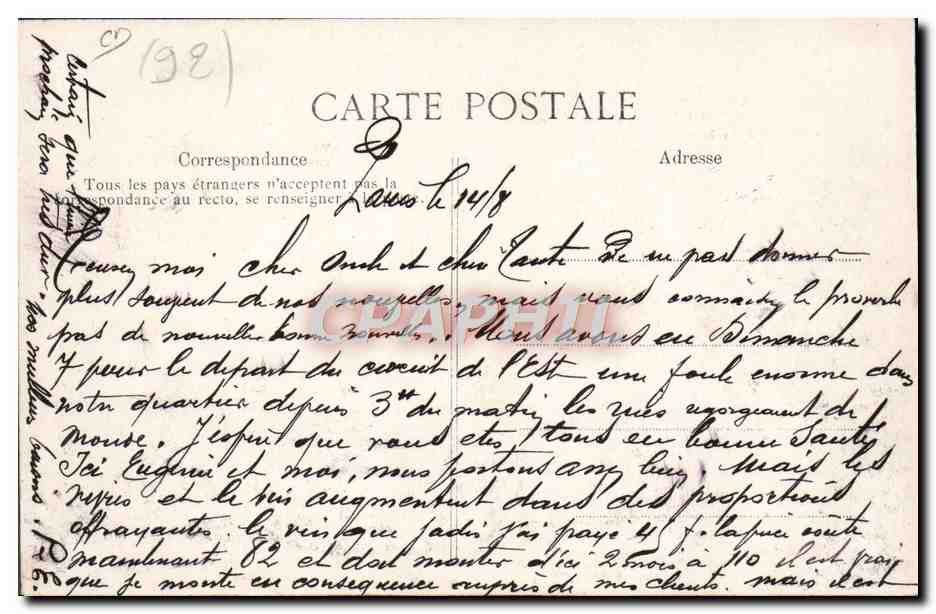 (92)
CARTE POSTALE
Correspondance
Adresse
Tous les pays étrangers n'acceptent pas la
correspondance au recto, se renseigner à la
le 14/8
Excusez moi cher Oncle et chère Tante de ne pas donner
plus souvent de nos nouvelles, mais vous connaissez le proverbe
pas de nouvelles bonne nouvelles. Nous avons eu Dimanche
7 pour le depart du circuit de l'Est une foule enorme dans
notre quartier depuis 3 du matin les rues regorgeaient de
monde. J'espère que vous etes tous en bonne santé
Ici Eugénie et moi, nous portons assez bien. Mais les
et le vin augmentent dans des proportions
effrayantes. le vin que jadis j'ai payé 45 f. la pièce coute
maintenant 82 et doit monter d'ici 2 mois à 110 il est vrai
que je monte en consequence auprès de mes clients. mais il est
certain que l'hiver
prochain sera très dur. nos meilleurs baisers.
CPAPHIL